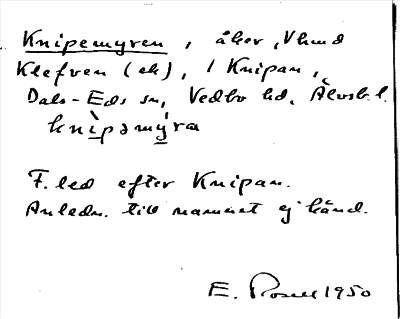 Knipemyren, åker, Vhmd
Klefven (ek), 1 Knipan,
Dals-Eds sn, Vedbo hd, Älvsb. l.
knìpəmy̆ra
F. led efter Knipan.
Anledn. till namnet ej känd.
E. 1950